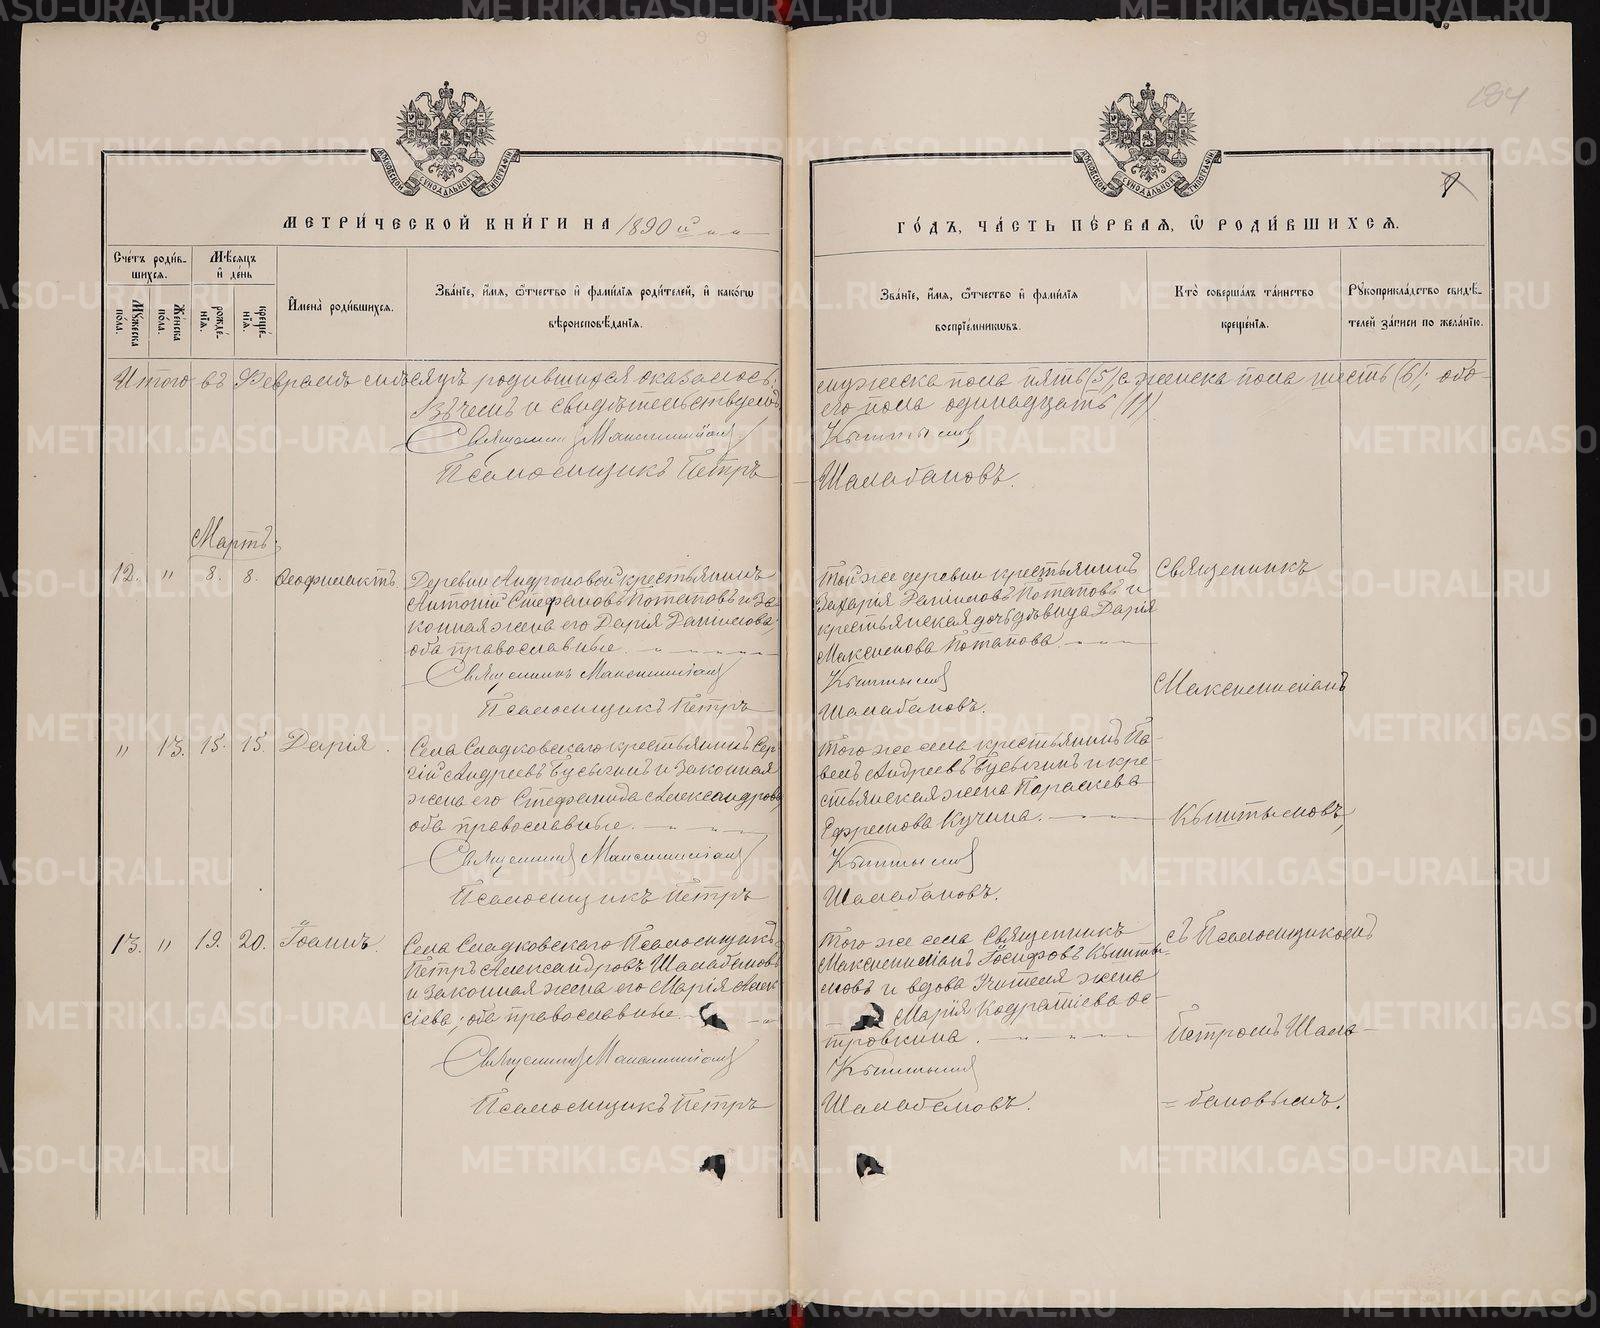 184
МЕТРИ́ЧЕСКОЙ КНИ́ГИ НА 1890 й
ГО́ДЪ, ЧА́СТЬ ПЕ́РВАЯ, Ѡ РОДИ́ВШИХСЯ.
Сче́тъ роди́в-
шихся.
Мѣ́сяцъ
и҆ де́нь
Му́жеска
по́ла.
Же́нска
по́ла.
рожде́-
нїя.
креще́-
нїя.
И҆мена̀ роди́вшихся.
Зва́нїе, и҆́мя, ѻ҆́тчество и҆ фами́лїя роди́телей, и҆ како́гѡ
вѣроисповѣ́данїя.
Зва́нїе, и҆́мя, ѻ҆́тчество и҆ фами́лїя
воспрїе́мникѡвъ.
Кто̀ соверша́лъ та́инство
креще́нїя.
Рꙋкоприкла́дство свидѣ́-
телей за́писи по жела́нїю.
Итого въ Февралѣ мѣсяцѣ родившихся оказалось:
мужеска пола пять (5) а женска пола шесть (6); обо-
его пола одинадцать (11)
Въ чемъ и свидѣтельствуемъ
Священникъ Максимиліанъ
Кыштымовъ
Псаломщикъ Петръ
Шалабановъ.
Мартъ.
12. " 8. 8. Ѳеофилактъ
Деревни Андроновой крестьянинъ
Антоній Стефановъ Потаповъ и за-
конная жена его Дарія Даніилова,
оба православные.
Священникъ Максимиліанъ
Псаломщикъ Петръ
Той же деревни крестьянинъ
Захарія Даніиловъ Потаповъ и
крестьянская дочь дѣвица Дарія
Максимова Потапова.
Кыштымовъ
Шалабановъ.
Священникъ
Максимиліанъ
" 13. 15. 15. Дарія.
Села Сладковскаго крестьянинъ Сер-
гій Андреевъ Бусыгинъ и законная
жена его Стефанида Александрова,
оба православные.
Священникъ Максимиліанъ
Псаломщикъ Петръ
Того же села крестьянинъ Па-
велъ Андреевъ Бусыгинъ и кре-
стьянская жена Параскева
Ефремова Кучина.
Кыштымовъ
Шалабановъ.
Кыштымовъ,
13. " 19. 20. Іоаннъ.
Села Сладковскаго Псаломщикъ
Петръ Александровъ Шалабановъ
и законная жена его Марія Алек-
сіева; оба православные.
Священникъ Максимиліанъ
Псаломщикъ Петръ
Того же села Священникъ
Максимиліанъ Іосифовъ Кышты-
мовъ и вдова Учителя жена
Марія Кодратіева Ос-
тровкина.
Кыштымовъ
Шалабановъ.
съ Псаломщикомъ
Петромъ Шала-
=бановымъ.
METRIKI.GASO-URAL.RU